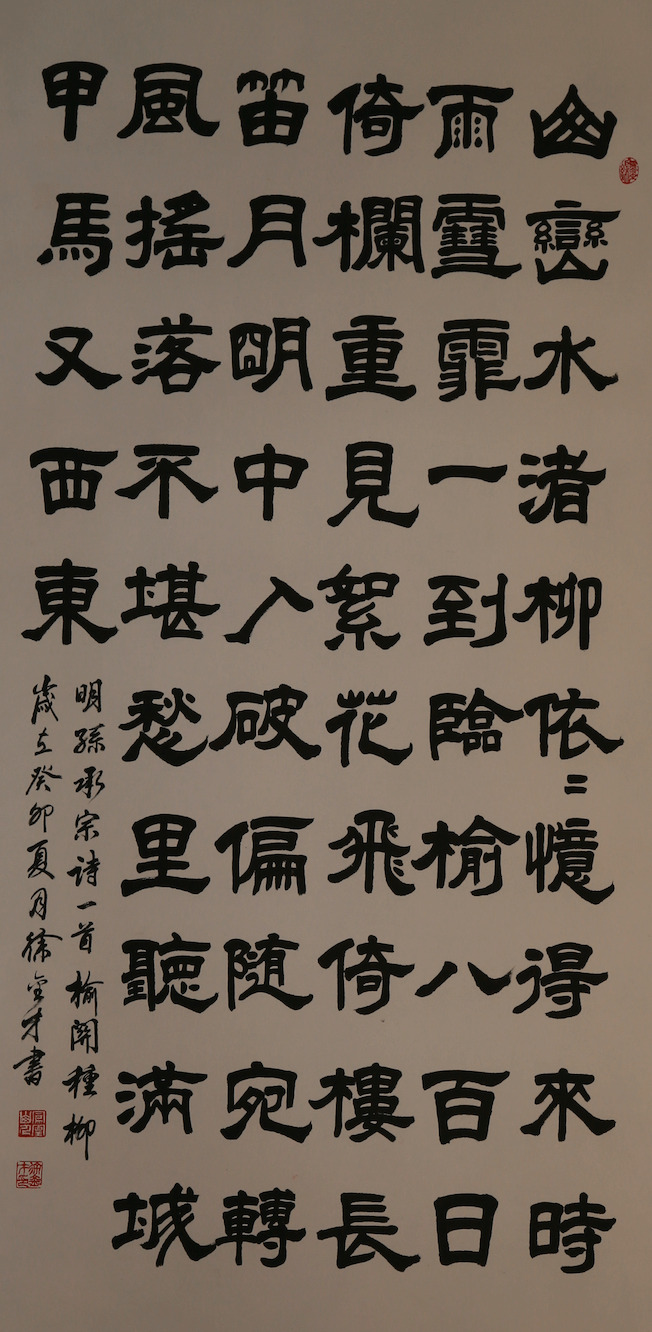 幽巒水渚柳依〻憶得來時
雨雪霏一到臨榆八百日
倚欄重見絮花飛倚樓長
笛月明中入破偏隨宛轉
風搖落不堪愁里聽滿城
甲馬又西東
明孫承宗詩一首榆關種柳
歲在癸卯夏月徐金才書